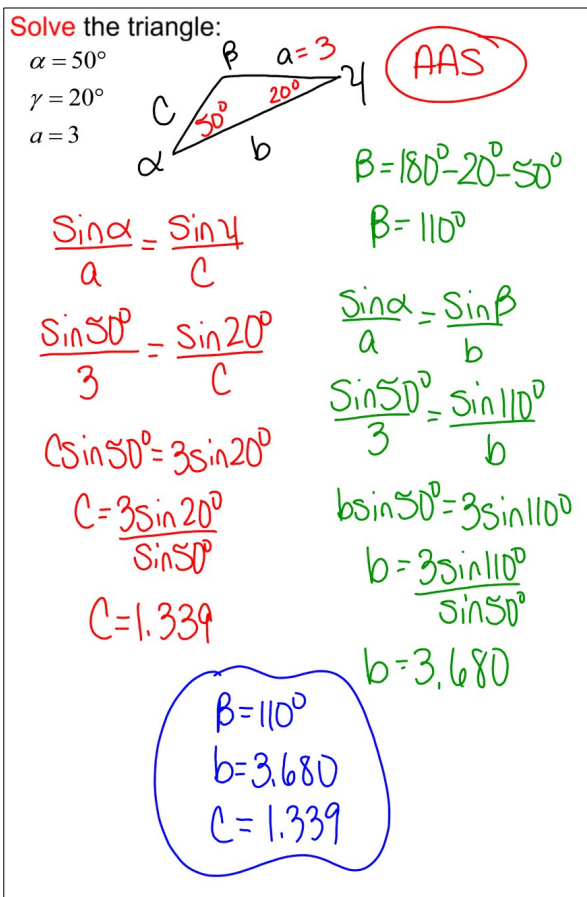 Solve the triangle:
α = 50°
γ = 20°
a = 3
β a=3 γ
20°
C 50°
b
α
AAS
β=180°-20°-50°
β=110°
Sinα/a = Sinγ/C
Sin50°/3 = Sin20°/C
CSin50°=3Sin20°
C=3Sin20°/Sin50°
C=1.339
Sinα/a = Sinβ/b
Sin50°/3 = Sin110°/b
bsin50°=3sin110°
b=3sin110°/sin50°
b=3.680
β=110°
b=3.680
C=1.339